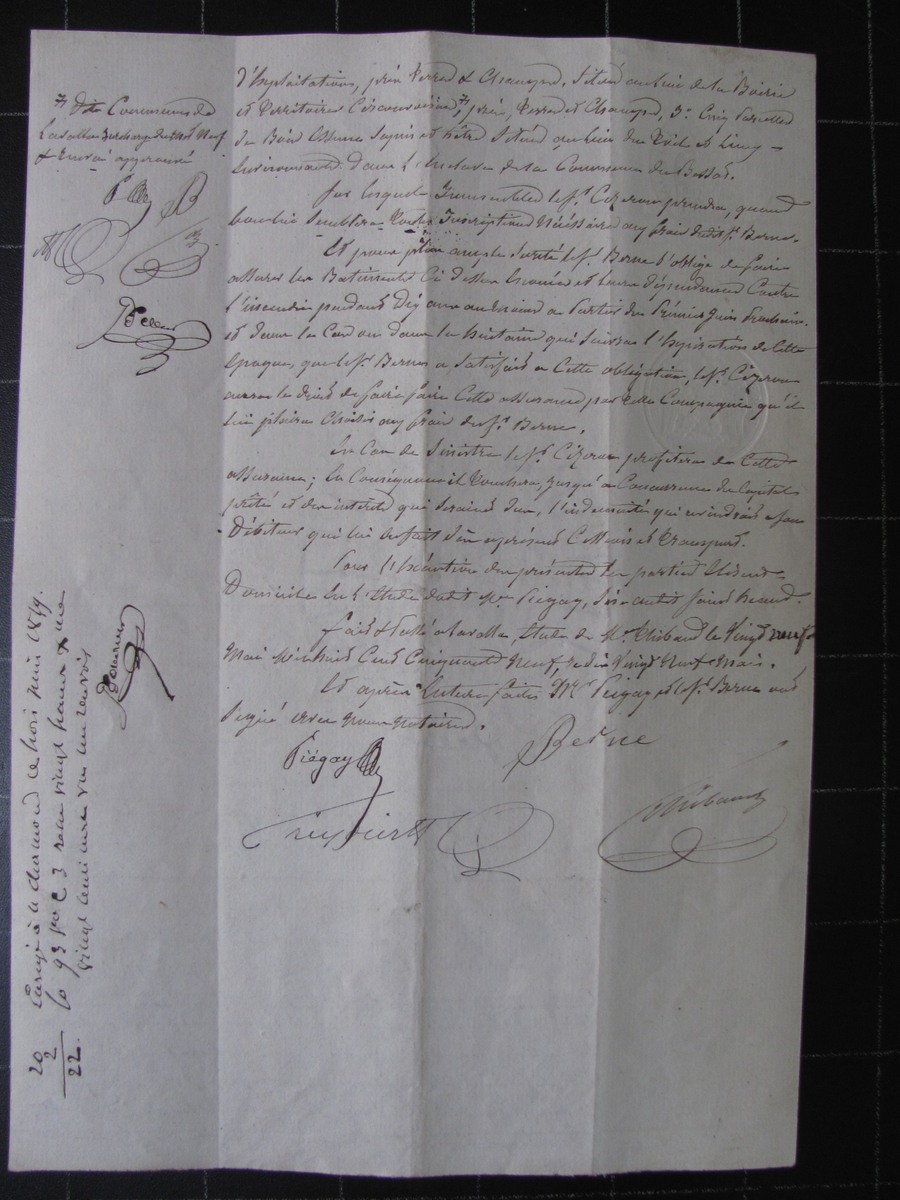 d'Exploitation, près Terres & Champs, Situé au lieu de la Boirie
et Territoires Circonvoisins, près, Terres et Champs, 3° Cinq Parcelles
de Bois Essence Sapin et hêtre Situés au lieu du
Environnants dans l'Enclave de la Commune de Bessas.
Sur lesquels Immeubles le Sr. Cizeron prendra, quand
bon lui Semblera toutes Inscriptions Nécéssaires aux frais dudit Sr. Berne.
Et pour plus ample Sureté le Sr. Berne s'oblige de faire
assurer les Batiments Ci dessus et leurs dépendances Contre
l'incendie pendant Dix ans au moins a Partir du Prémier Juin Prochain.
et dans le Cas ou dans la huitaine qui Suivra l'Expiration de Cette
époque, que le Sr. Berne a Satisfait a Cette obligation, le Sr. Cizeron
aura le droit de faire faire Cette assurance par telle Compagnie qu'il
lui plaira Choisir aux frais du Sr. Berne.
En Cas de Sinistre le Sr. Cizeron profitera de Cette
assurance; En Conséquence il touchera, jusqu'à Concurrence du Capital
prêté et des intérêts qui seraient dus, l'indemnité qui reviendrait a son
Débiteur qui lui en fait d'en a présent Cession et Transport.
Pour l'Exécution des présentes les parties Elisent
Domicile En l'Etude dudit Me. Piégay, l'un
fait & Passé a Lavalla, Etude de Me. Thibaud le Vingt neuf
Mai Mil huit Cent Cinquante Neuf, Vingt Neuf Mai.
Et après Lecture faite Mr Piégay et le Sr. Berne ont
Signé avec nous notaires.
Piégay
Berne
Thibaud
dite Commune de
Lavalla
& Envoi approuvé
P
B
Enrégé à St chamond le trois juin 1859.
fo 93 Vo C 3 reçu vingt francs &
vingt
20
2
22